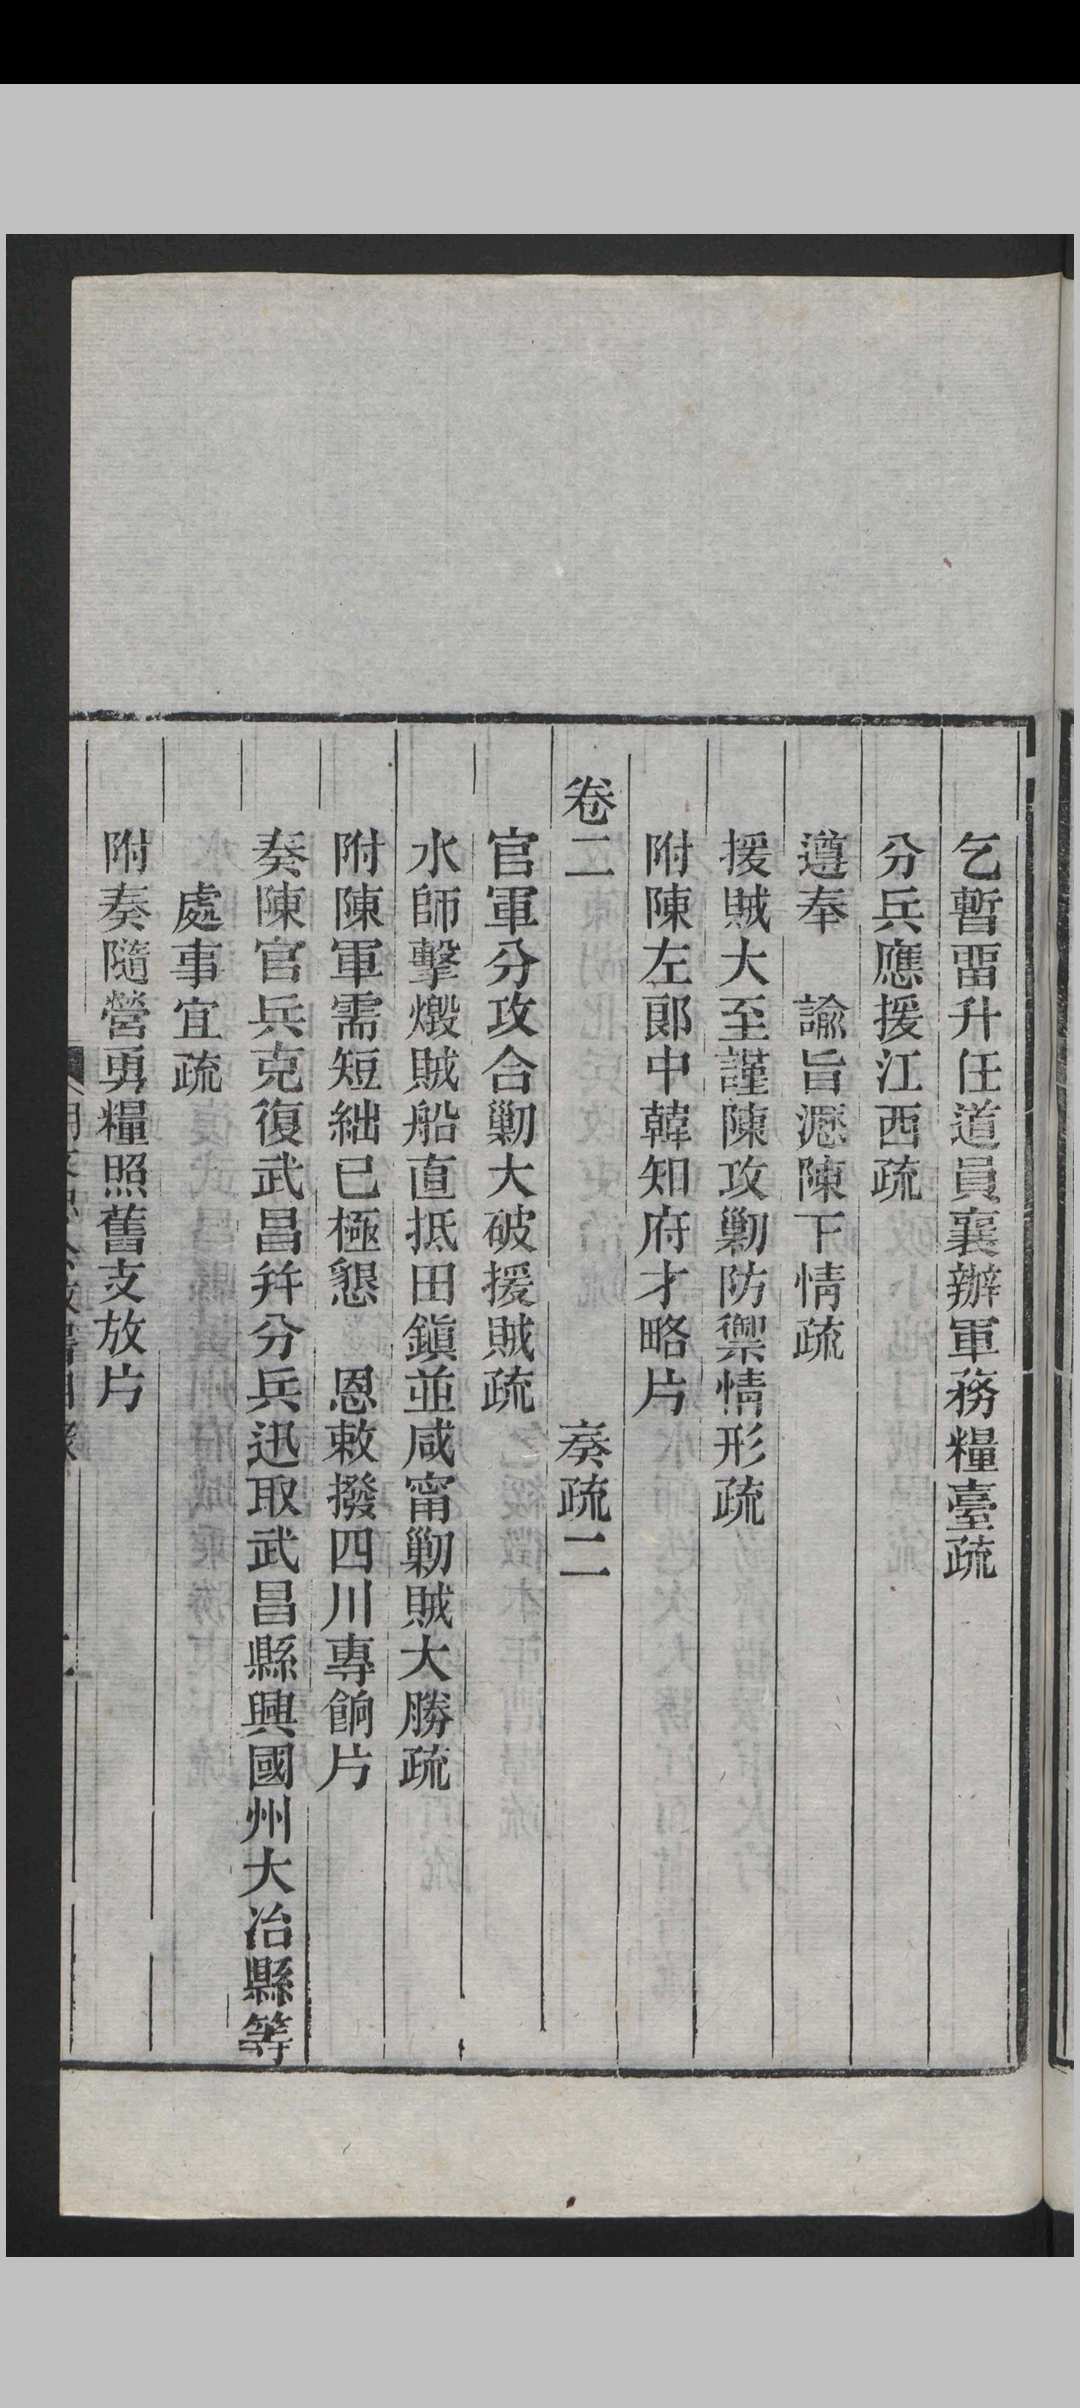 乞暫畱升任道員襄辦軍務糧臺疏
分兵應援江西疏
遵奉　諭旨瀝陳下情疏
援賊大至謹陳攻勦防禦情形疏
附陳左郎中韓知府才略片
卷二　奏疏二
官軍分攻合勦大破援賊疏
水師擊燬賊船直抵田鎮並咸甯勦賊大勝疏
附陳軍需短絀已極懇　恩敕撥四川專餉片
奏陳官兵克復武昌并分兵迅取武昌縣興國州大冶縣等
處事宜疏
附奏隨營勇糧照舊支放片